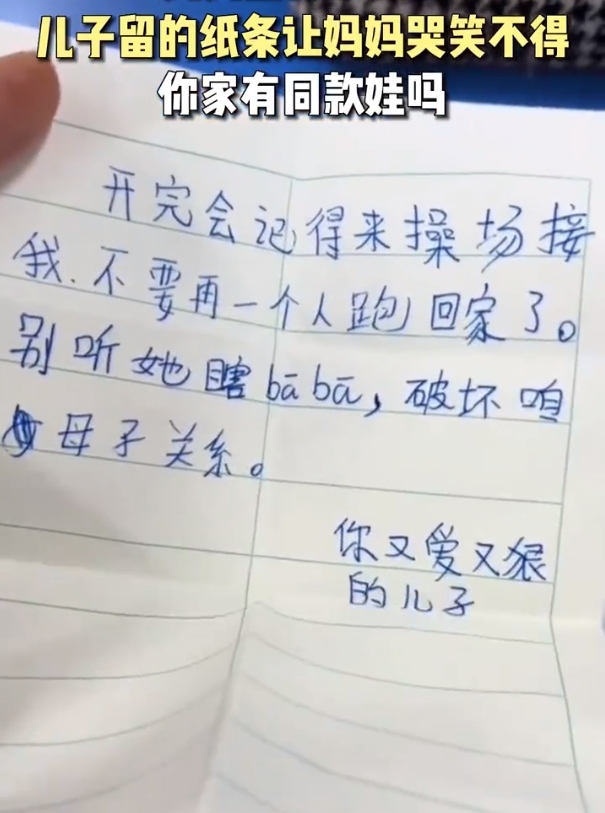 儿子留的纸条让妈妈哭笑不得
你家有同款娃吗
开完会记得来操场接
我.不要再一个人跑回家了。
别听她瞎bābā，破坏咱
母子关系。
你又爱又狠
的儿子